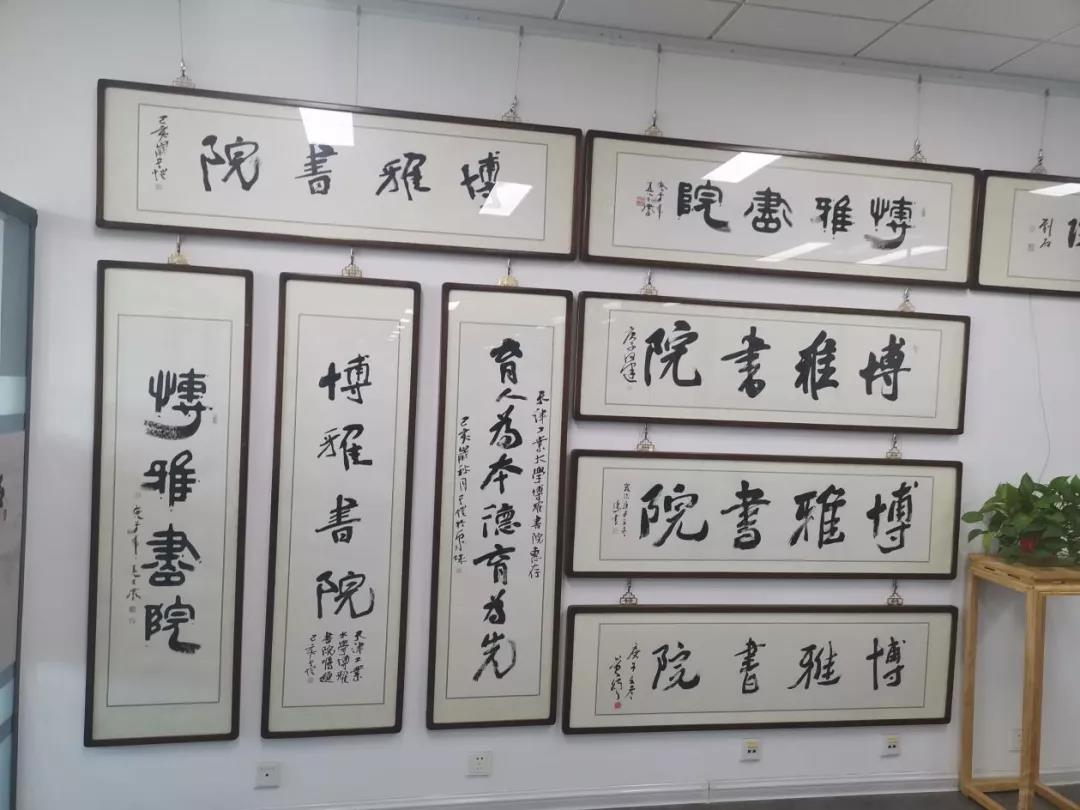 博雅書院
己亥歲
博雅書院
庚子年
院
劉石
博雅書院
庚子
博雅書院
博雅書院
庚子
博雅書院
庚子年
博雅書院
天津工業
大學博雅
書院惠題
己亥
天津工業大學博雅書院惠存
育人為本德育為先
己亥歲秋月